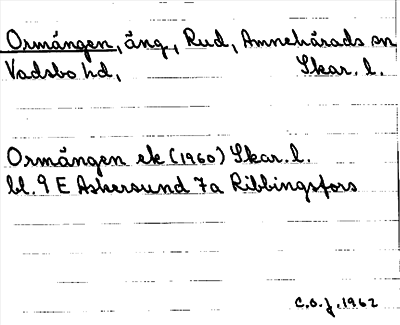 Ormängen, äng, Rud, Amnehärads sn
Vadsbo hd, Skar. l.
Ormängen ek (1960) Skar. l.
bl. 9 E Askersund 7a Ribbingsfors
C.O.J. 1962